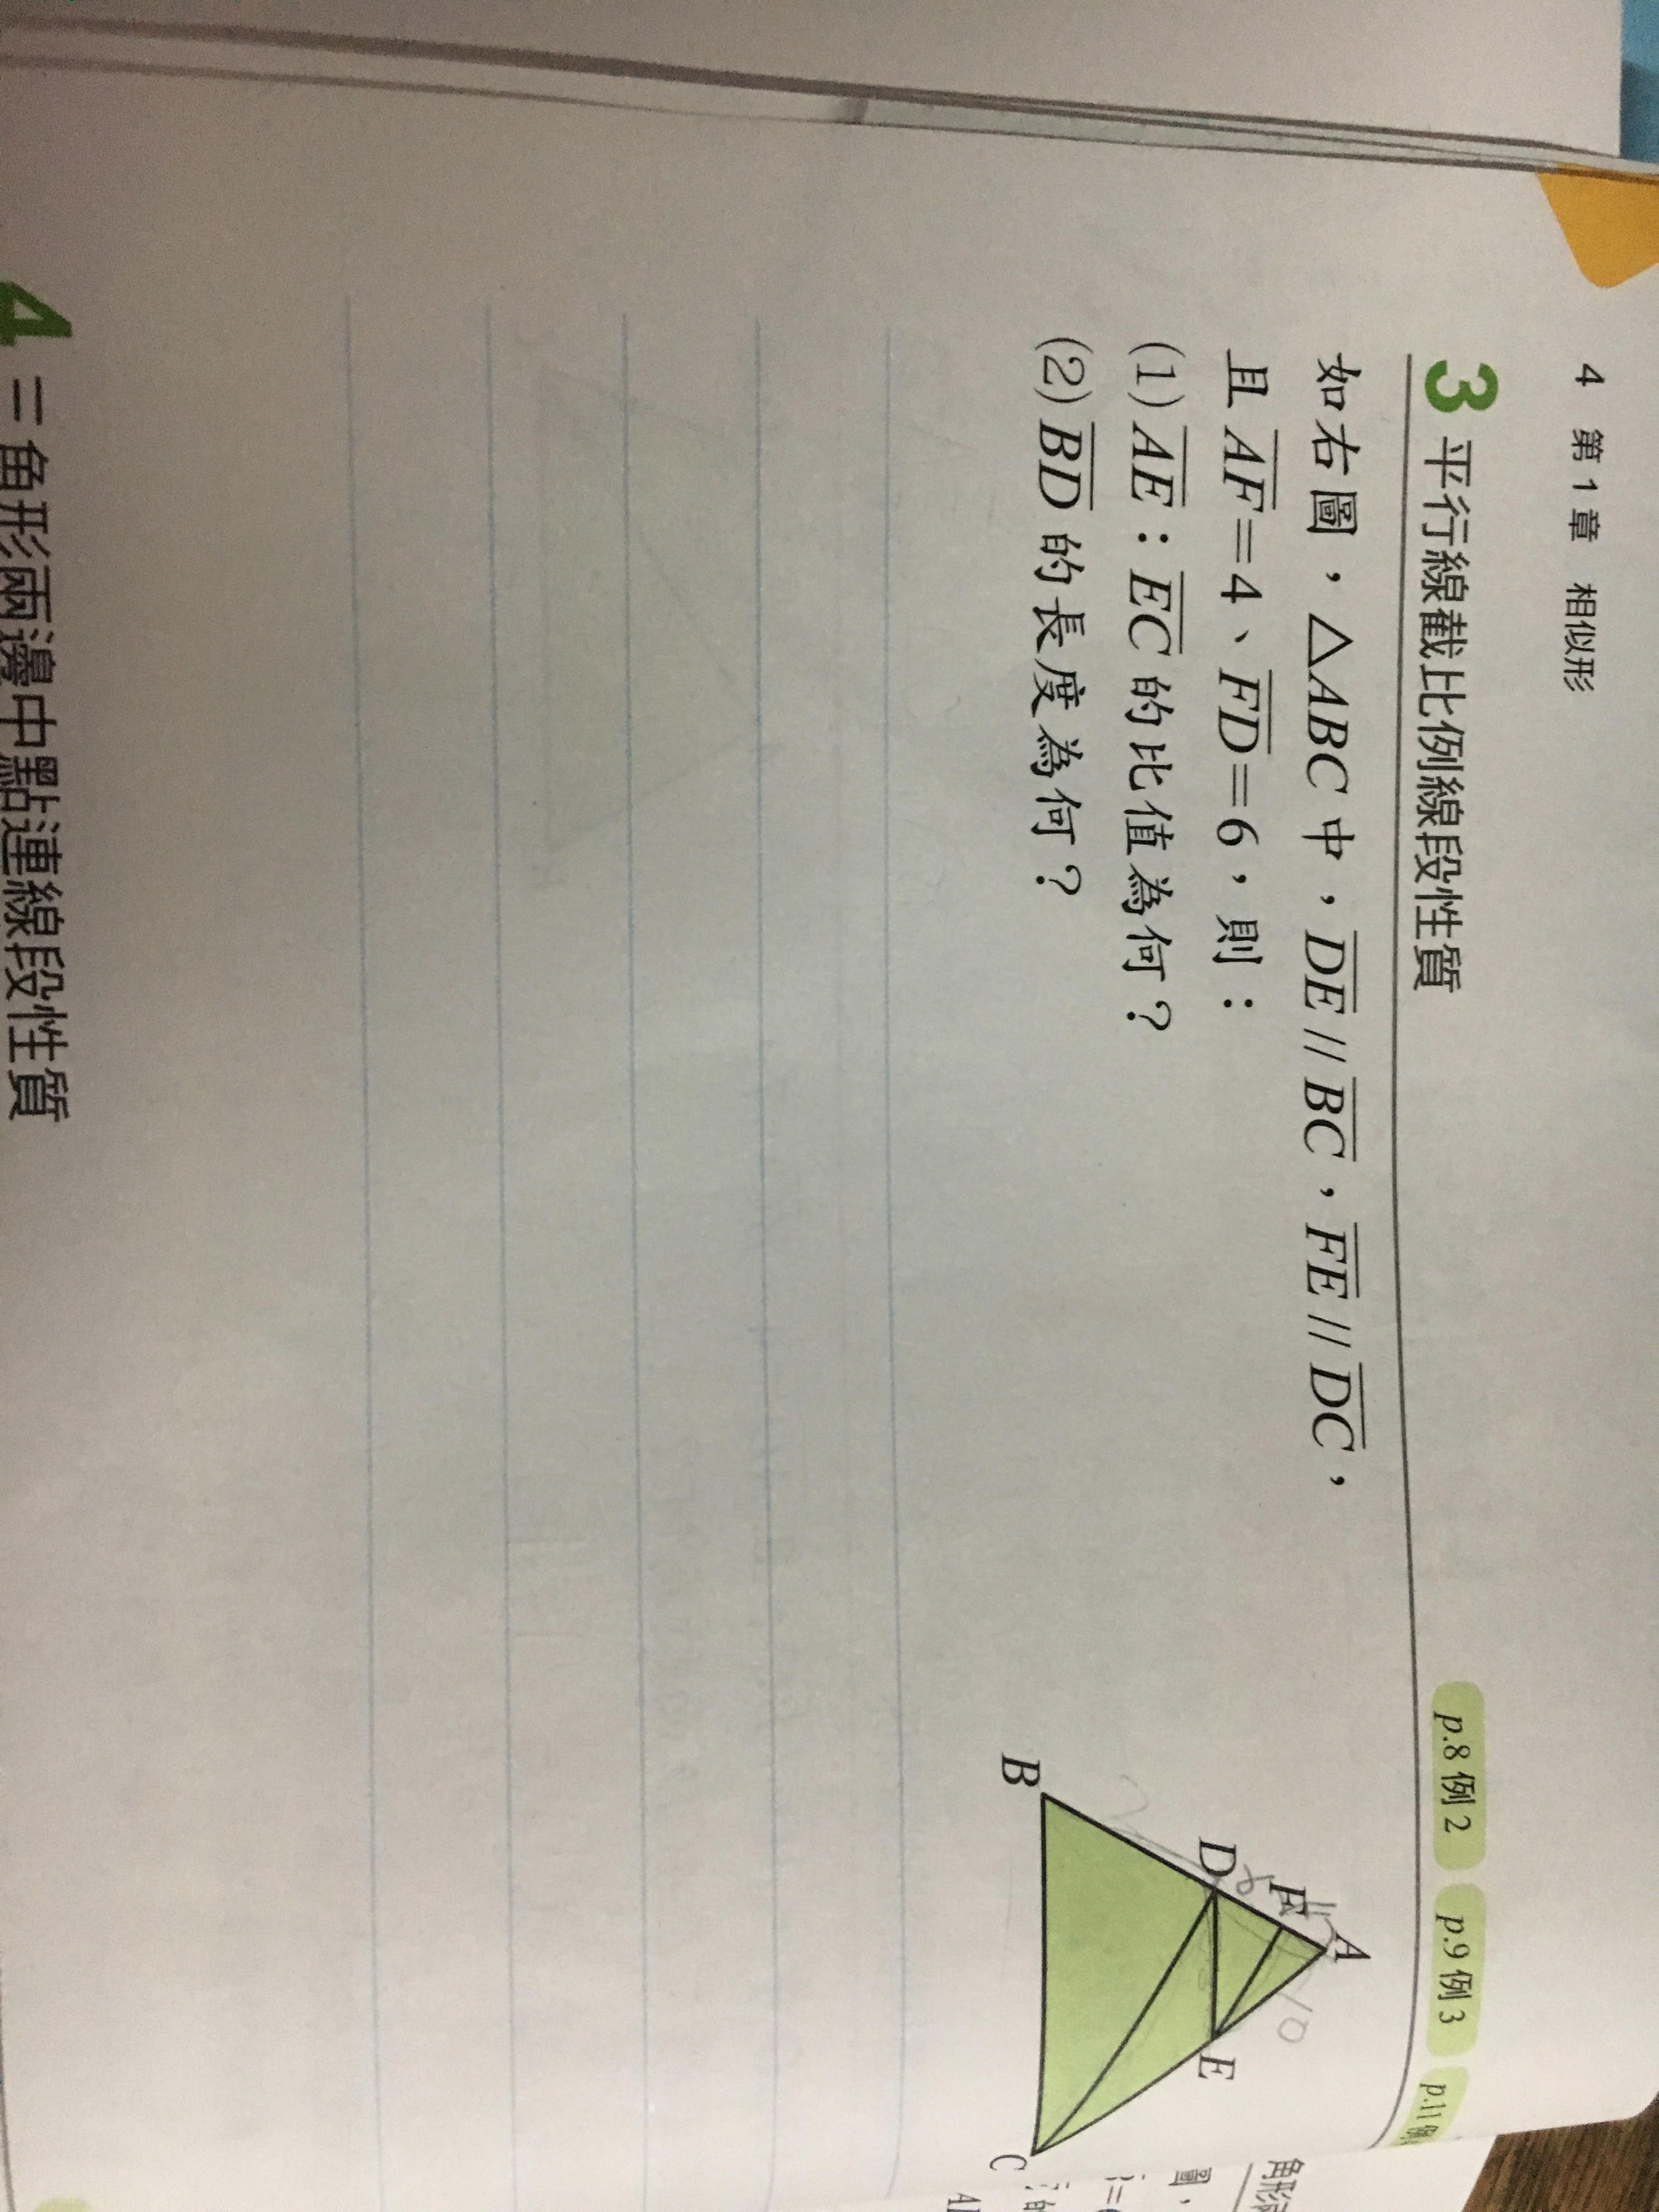 4 第1章 相似形
3 平行線截比例線段性質 p.8 例2 p.9 例3 p.11 例
如右圖，△ABC中，DE // BC，FE // DC，
且 AF=4、FD=6，則：
(1) AE：EC 的比值為何？
(2) BD 的長度為何？
A
F
D
E
B
C
10
4 三角形兩邊中點連線段性質